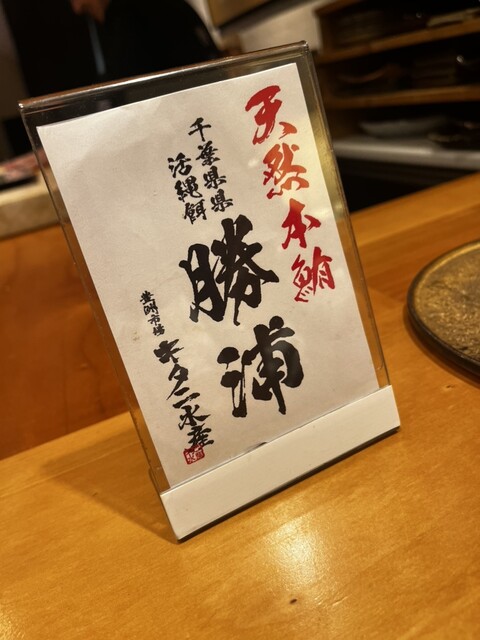 天然本鮪
千葉県県
活縄餌
勝浦
豊洲市場
キタニ水産